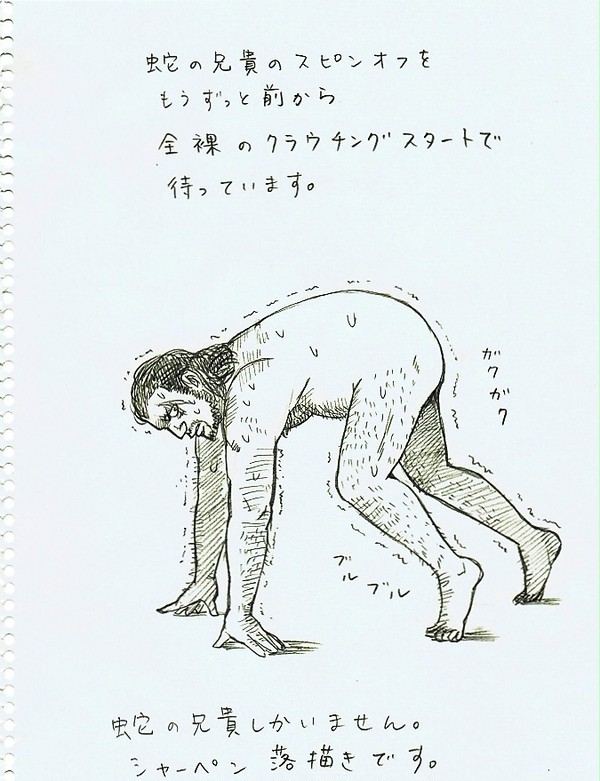 蛇の兄貴のスピンオフを
もうずっと前から
全裸のクラウチングスタートで
待っています。
ガクガク
ブルブル
蛇の兄貴しかいません。
シャーペン落描きです。